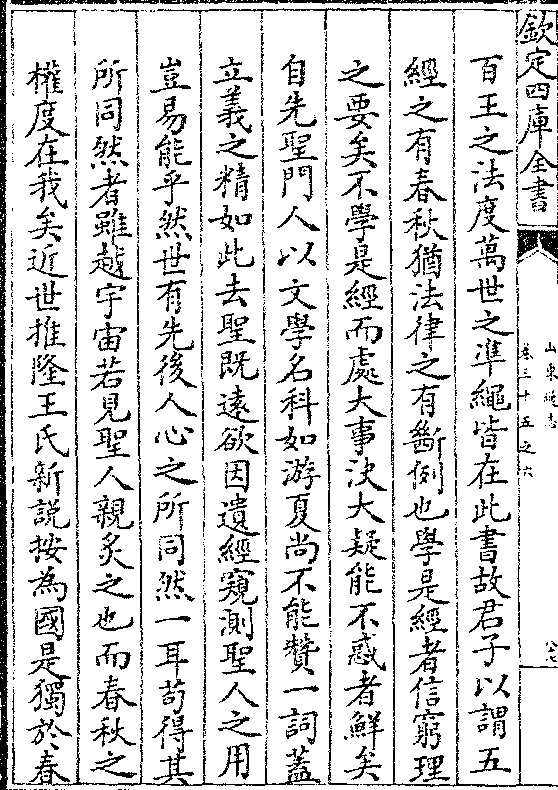 欽定四庫全書
山東通志
卷三十五之六
百王之法度萬世之凖繩皆在此書故君子以謂五
經之有春秋猶法律之有斷例也學是經者信窮理
之要矣不學是經而處大事決大疑能不惑者鮮矣
自先聖門人以文學名科如游夏尚不能贊一詞蓋
立義之精如此去聖既逺欲因遺經窺測聖人之用
豈易能乎然世有先後人心之所同然一耳茍得其
所同然者雖越宇宙若見聖人親炙之也而春秋之
權度在我矣近世推隆王氏新說按為國是獨於春